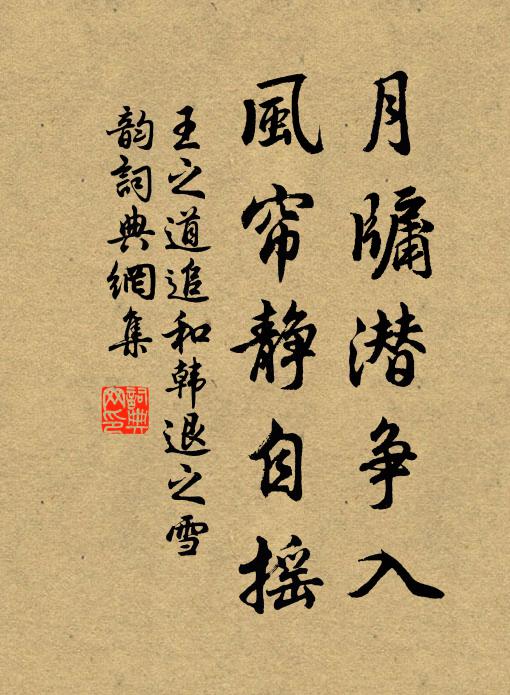 月牖潜争入
風帘静自摇
王之道追和韩退之雪
韵詞典網集
詞典
网印